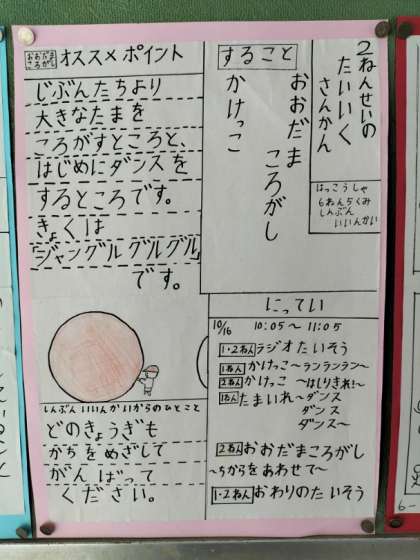 2ねんせいの
たいいく
さんかん
はっこうしゃ
6ねん5くみ
しんぶん
いいんかい
すること
おおだま
ころがし
かけっこ
おおだま
ころがし
オススメポイント
じぶんたちより
大きなたまを
ころがすところと、
はじめにダンスを
するところです。
きょくは
「ジャングルグルグル」
です。
にってい
10/16 10:05〜11:05
1・2ねん ラジオたいそう
1ねん かけっこ 〜ランランラン〜
2ねん かけっこ 〜はしりきれ!〜
1ねん たまいれ〜ダンス
ダンス
ダンス〜
2ねん おおだまころがし
〜ちからをあわせて〜
1・2ねん おわりのたいそう
しんぶんいいんかいからのひとこと
どのきょうぎも
かちをめざして
がんばって
ください。